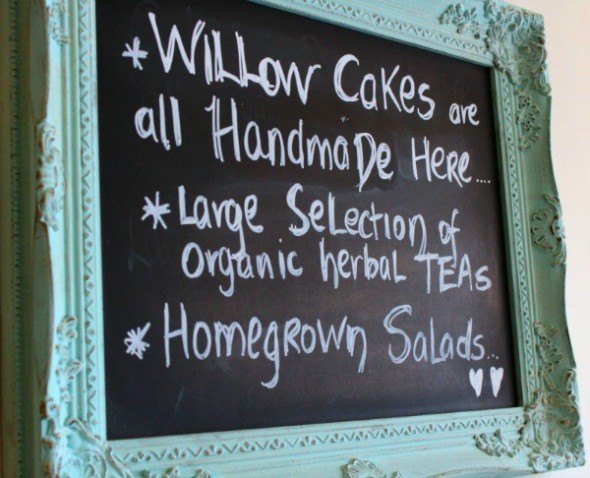 * Willow Cakes are
all Handmade Here....
* Large Selection of
Organic herbal TEAs
* Homegrown Salads...